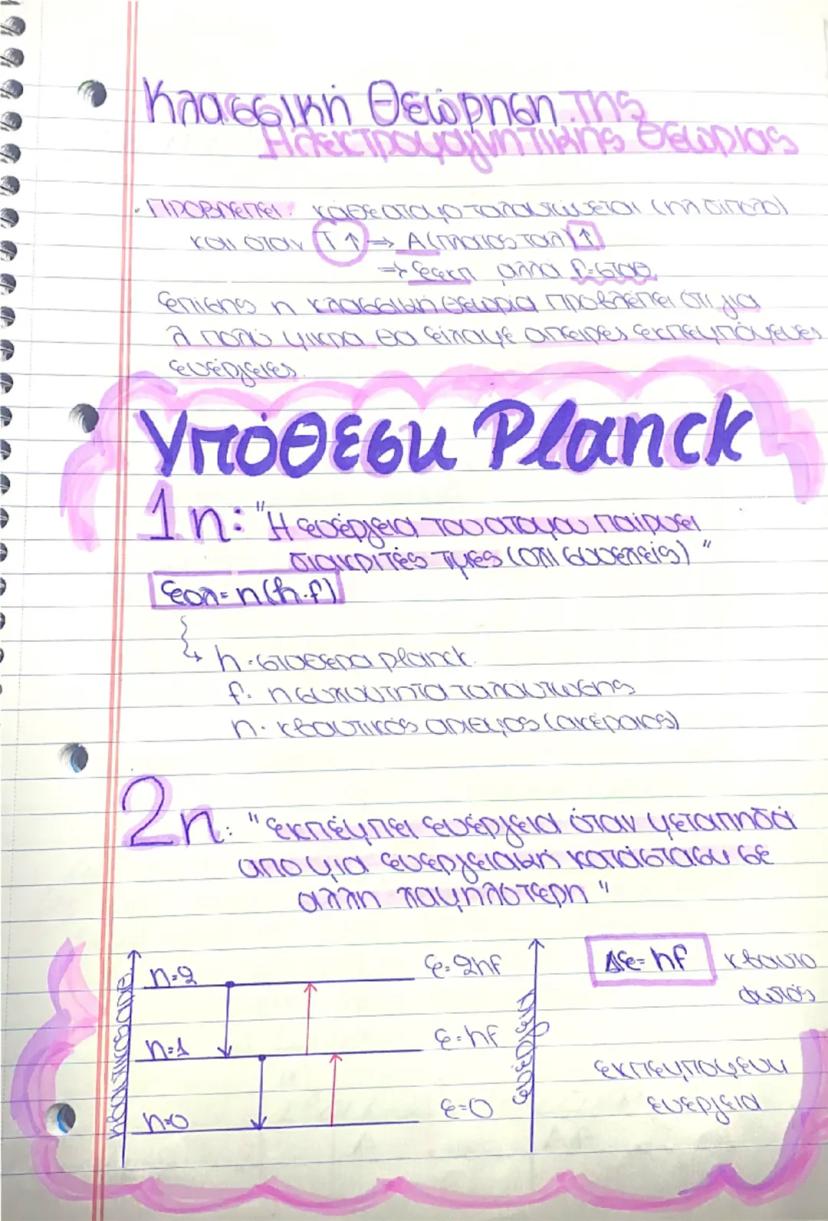 Κλασσική Θεώρηση της
Ηλεκτρομαγνητικης Θεωριας
· Προβλεπει: κάθε ατομο ταλαντώνεται (ηλ δίπολο)
και οταν T↑ ⇒ A(πλατος ταλ)↑
⇒ εεκπ, αλλα f=σταθ
επισης η κλασσικη θεωρια προβλέπει ότι για
λ πολυ μικρα θα είχαμε απειρες εκπεμπόμενες
ενέργειες.
Υπόθεση Planck
1η: "Η ενέργεια του ατομου παίρνει
διακριτές τιμες (οπι συνεπείς)"
εολ=n(h.f)
h: σταθερα planck
f: η συχνοτητα ταλαντωσης
n: κβαντικός αριθμος (ακέραιος)
2η: "εκπέμπει ενέργεια όταν μεταπηδά
απο μια ενεργειακη κατάσταση σε
αλλη χαμηλότερη"
n=2
ε=2hf
n=1
ε=hf
n=0
ε=0
ενέργεια
Δε=hf
κβαντο
φωτός
εκπεμπομενη
ενεργεια